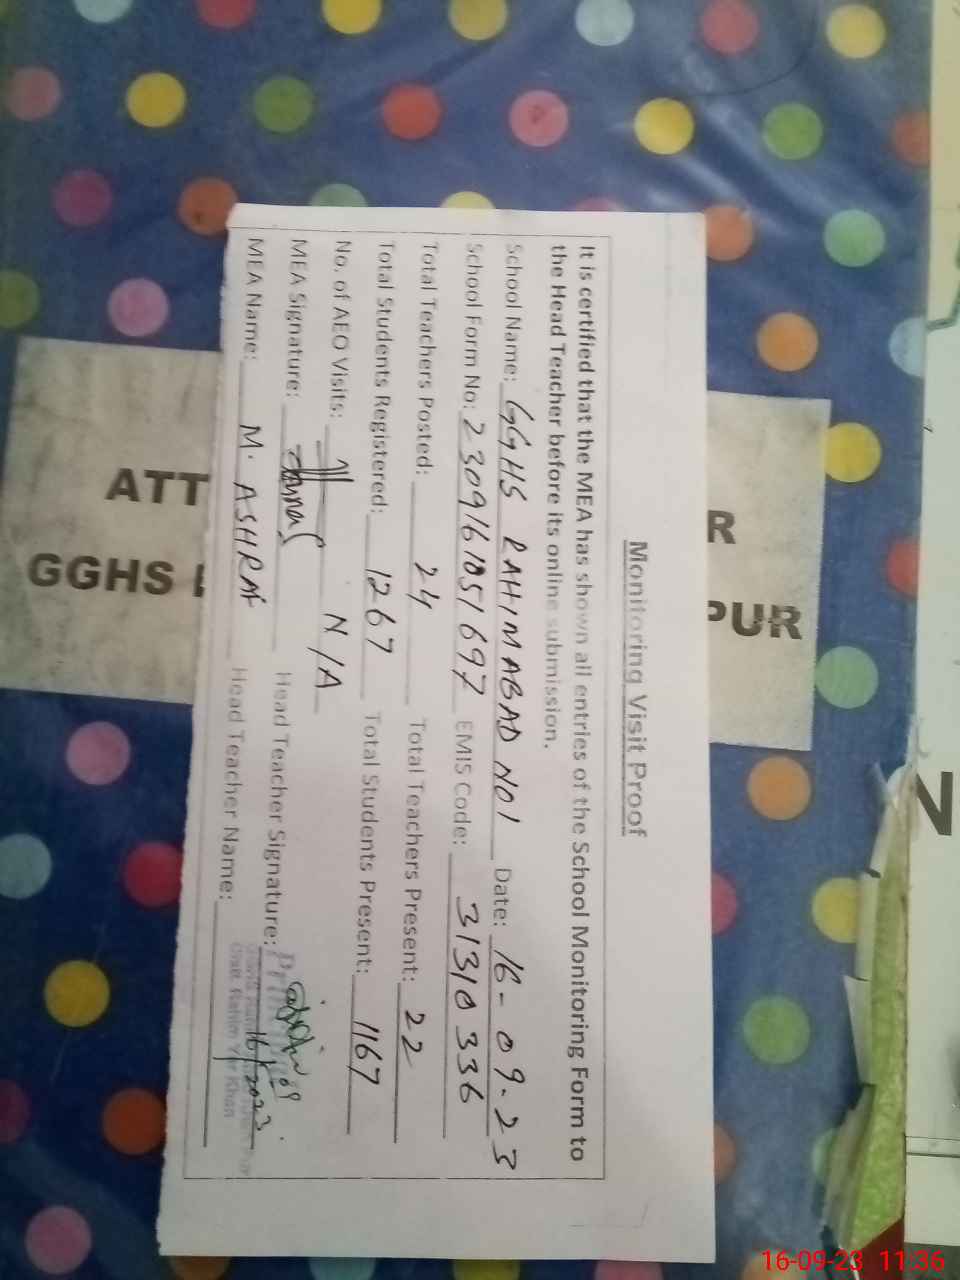 Monitoring Visit Proof
It is certified that the MEA has shown all entries of the School Monitoring Form to
the Head Teacher before its online submission.
School Name: GGHS RAHIMABAD NO1 Date: 16-09-23
School Form No: 2309161051697 EMIS Code: 31310336
Total Teachers Posted: 24 Total Teachers Present: 22
Total Students Registered: 1267 Total Students Present: 1167
No. of AEO Visits: N/A
MEA Signature: Head Teacher Signature: 16/09
MEA Name: M. ASHRAF Head Teacher Name: 2023
Distt. Rahim Yar Khan
ATT R
GGHS PUR
N
16-09-23 11:36